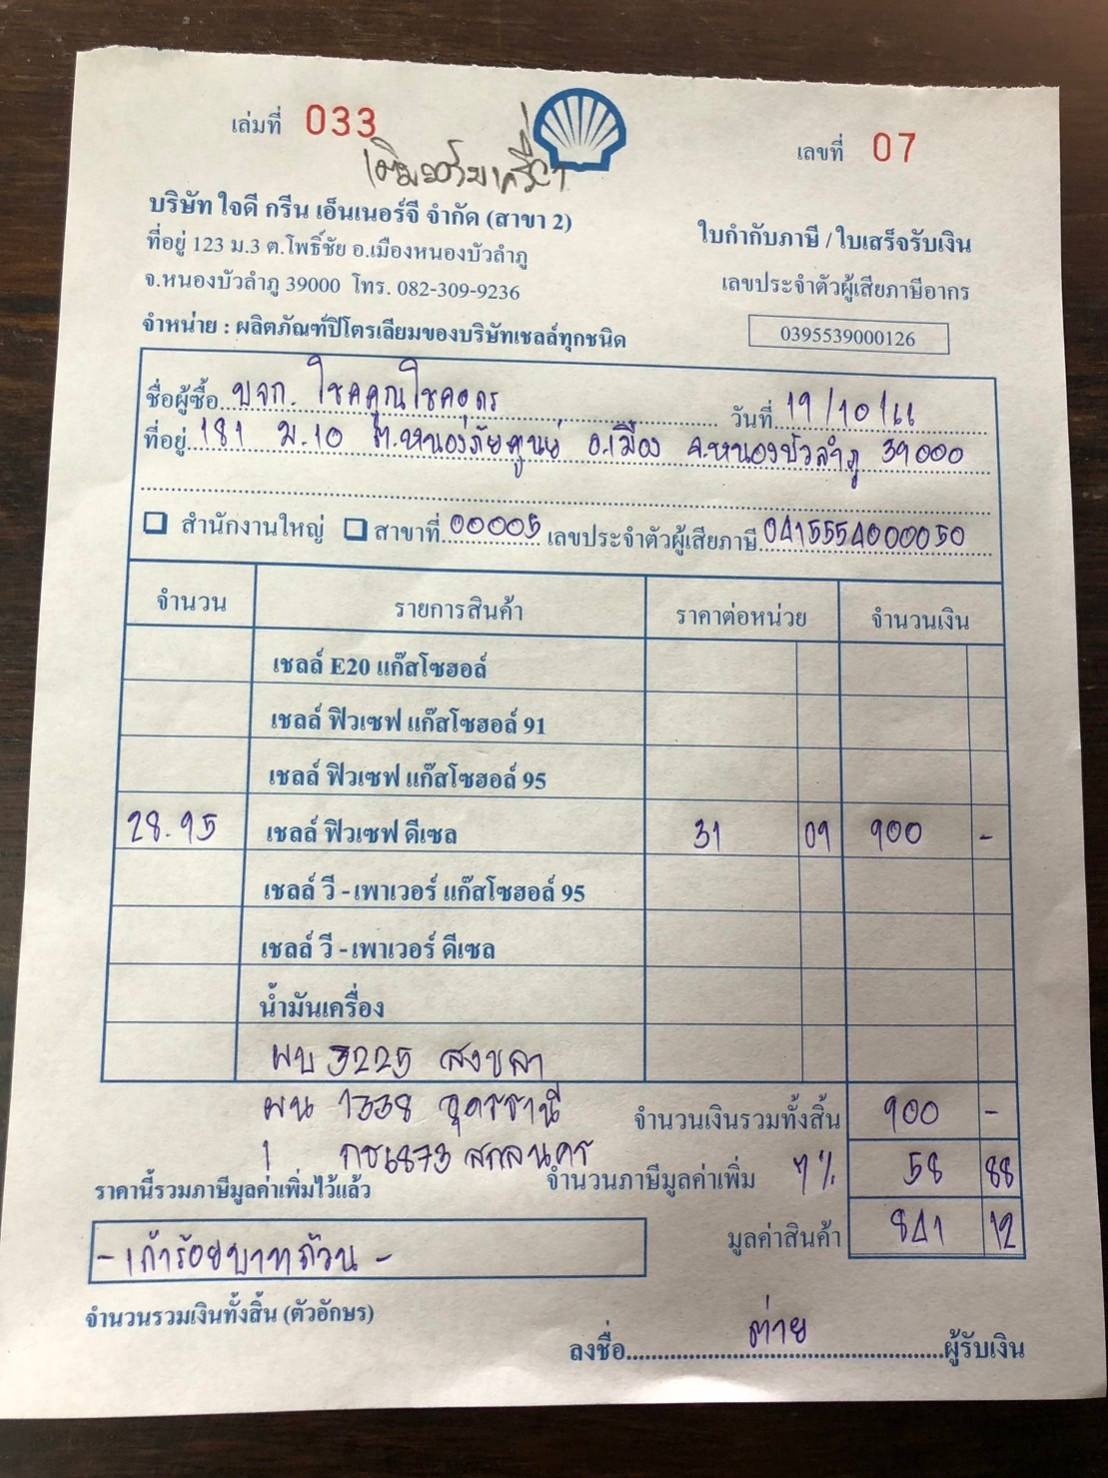 เล่มที่ 033
เลขที่ 07
บริษัท ใจดี กรีน เอ็นเนอร์จี จำกัด (สาขา 2)
ที่อยู่ 123 ม.3 ต.โพธิ์ชัย อ.เมืองหนองบัวลำภู
จ.หนองบัวลำภู 39000 โทร. 082-309-9236
ใบกำกับภาษี / ใบเสร็จรับเงิน
เลขประจำตัวผู้เสียภาษีอากร
0395539000126
จำหน่าย : ผลิตภัณฑ์ปิโตรเลียมของบริษัทเชลล์ทุกชนิด
ชื่อผู้ซื้อ บจก. โชคคูณโชคอุดร วันที่ 19/10/66
ที่อยู่ 181 ม.10 ต.หนองภัยศูนย์ อ.เมือง จ.หนองบัวลำภู 39000
สำนักงานใหญ่ สาขาที่ 00005 เลขประจำตัวผู้เสียภาษี 0415554000050
จำนวน รายการสินค้า ราคาต่อหน่วย จำนวนเงิน
เชลล์ E20 แก๊สโซฮอล์
เชลล์ ฟิวเซฟ แก๊สโซฮอล์ 91
เชลล์ ฟิวเซฟ แก๊สโซฮอล์ 95
28.95 เชลล์ ฟิวเซฟ ดีเซล 31 09 900 -
เชลล์ วี - เพาเวอร์ แก๊สโซฮอล์ 95
เชลล์ วี - เพาเวอร์ ดีเซล
น้ำมันเครื่อง
ผบ 3225 สงขลา
ผน 1338 อุดรธานี
จำนวนเงินรวมทั้งสิ้น 900 -
กช6873 สกลนคร
ราคานี้รวมภาษีมูลค่าเพิ่มไว้แล้ว จำนวนภาษีมูลค่าเพิ่ม 7% 58 88
มูลค่าสินค้า 841 12
- เก้าร้อยบาทถ้วน -
จำนวนรวมเงินทั้งสิ้น (ตัวอักษร)
ลงชื่อ ต่าย ผู้รับเงิน